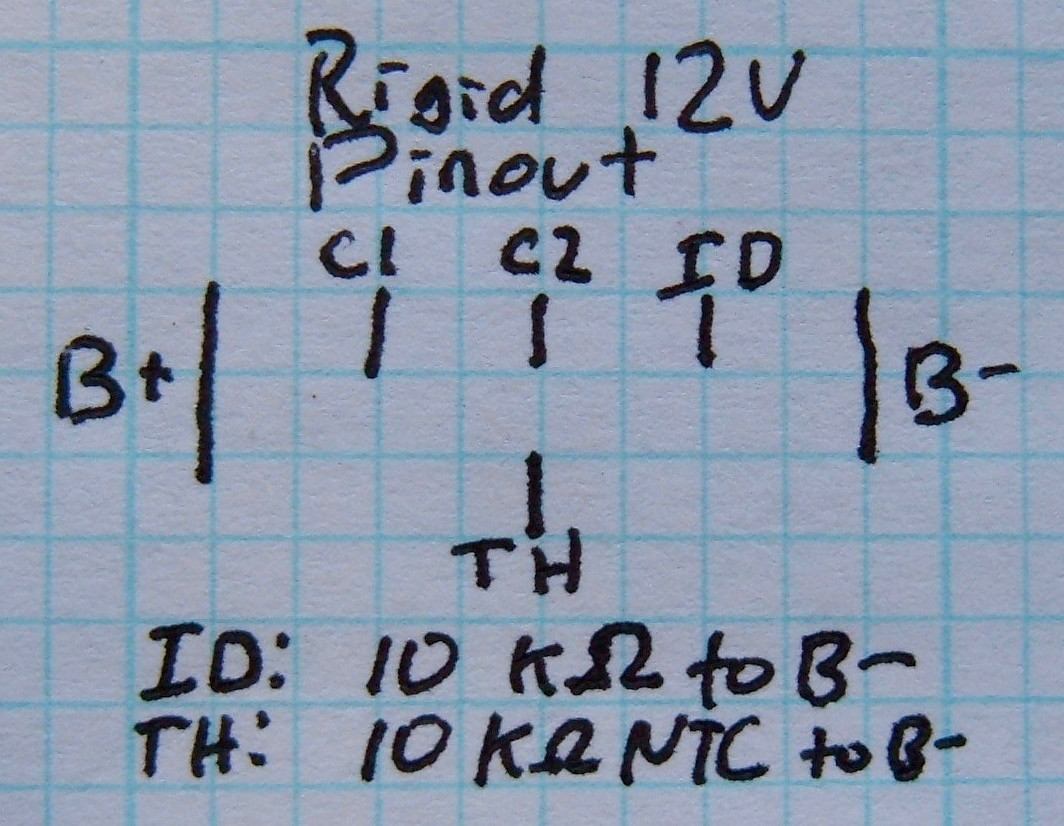 Rigid 12V
Pinout
C1 C2 ID
B+ B-
TH
ID: 10 KΩ to B-
TH: 10 KΩ NTC to B-